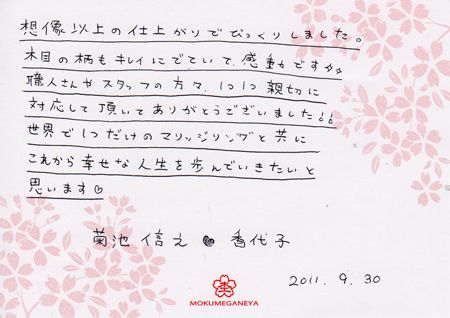 想像以上の仕上がりでびっくりしました。
木目の柄もキレイにでていて、感動です☆☆
職人さんやスタッフの方々、1つ1つ親切に
対応して頂いてありがとうございました!!
世界で1つだけのマリッジリングと共に
これから幸せな人生を歩んでいきたいと
思います♡
菊池 信之 ♥ 香代子
2011. 9. 30
MOKUMEGANEYA